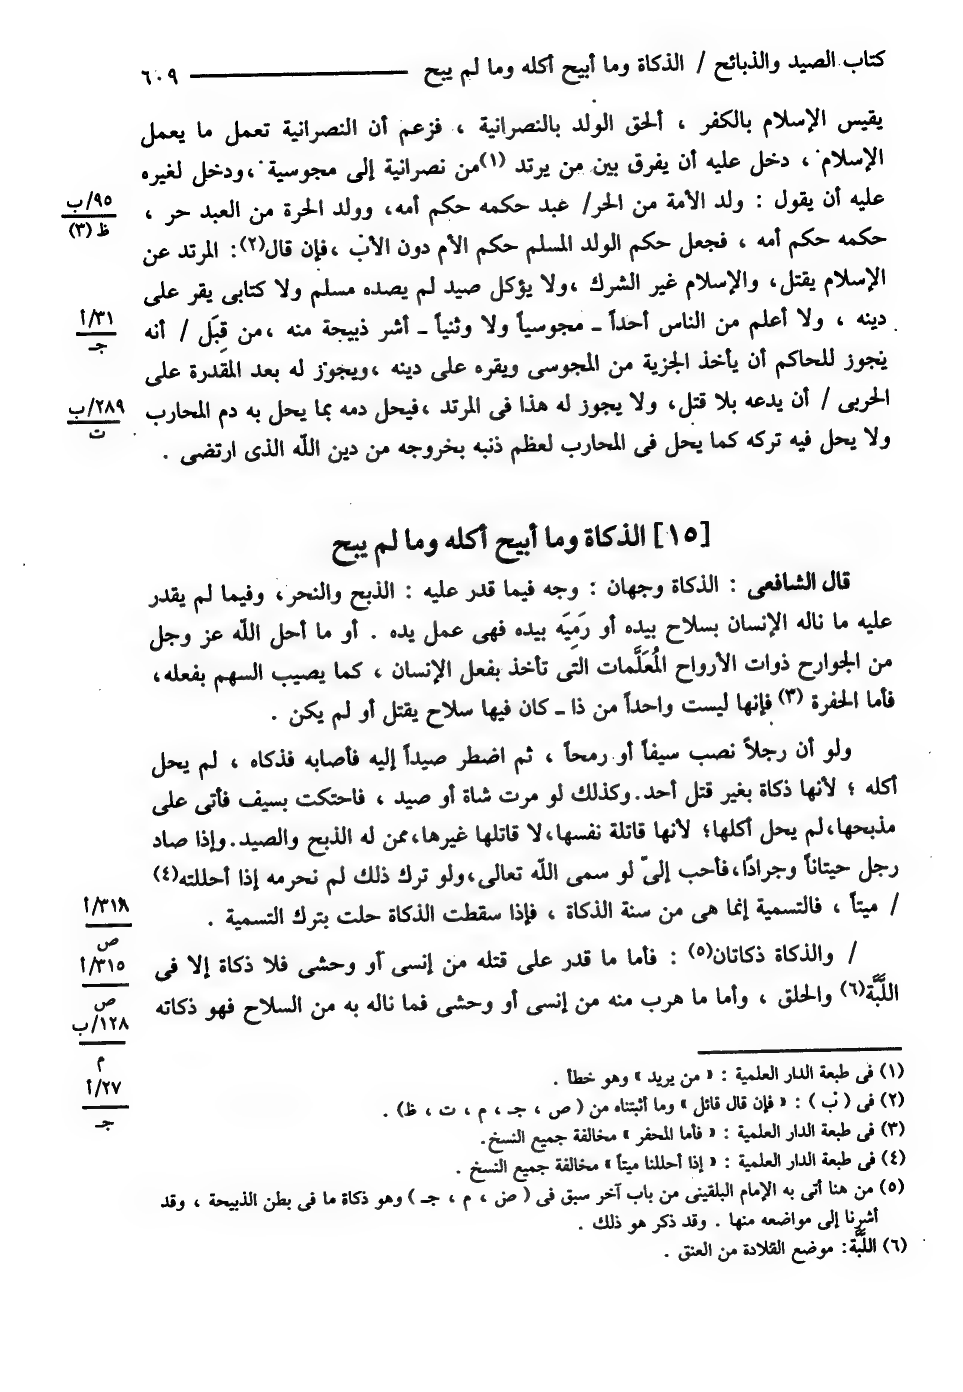 كتاب الصيد والذبائح / الذكاة وما أبيح أكله وما لم يبح ــــــــ ٦٠٩
يقيس الإسلام بالكفر ، ألحق الولد بالنصرانية ، فزعم أن النصرانية تعمل ما يعمل
الإسلام ، دخل عليه أن يفرق بين من يرتد (١) من نصرانية إلى مجوسية ، ودخل لغيره
عليه أن يقول : ولد الأمة من الحر / عبد حكمه حكم أمه، وولد الحرة من العبد حر ،
٩٥/ب
ظ (٣)
حكمه حكم أمه ، فجعل حكم الولد المسلم حكم الأم دون الأب ، فإن قال(٢) : المرتد عن
الإسلام يقتل، والإسلام غير الشرك ، ولا يؤكل صيد لم يصده مسلم ولا كتابى يقر على
دينه ، ولا أعلم من الناس أحداً ـ مجوسياً ولا وثنياً ـ أشر ذبيجة منه ، من قِبَلِ / أنه
٣١/أ
جـ
يجوز للحاكم أن يأخذ الجزية من المجوسى ويقره على دينه ، ويجوز له بعد المقدرة على
الحربى / أن يدعه بلا قتل، ولا يجوز له هذا فى المرتد ، فيحل دمه بما يحل به دم المحارب
٢٨٩/ب
ت
ولا يحل فيه تركه كما يحل فى المحارب لعظم ذنبه بخروجه من دين الله الذى ارتضى .
[١٥] الذكاة وما أبيح أكله وما لم يبح
قال الشافعى : الذكاة وجهان : وجه فيما قدر عليه : الذبح والنحر، وفيما لم يقدر
عليه ما ناله الإنسان بسلاح بيده أو رَمِيَه بيده فهى عمل يده . أو ما أحل الله عز وجل
من الجوارح ذوات الأرواح المُعَلَّمات التى تأخذ بفعل الإنسان ، كما يصيب السهم بفعله،
فأما الحفرة (٣) فإنها ليست واحداً من ذا ـ كان فيها سلاح يقتل أو لم يكن .
ولو أن رجلاً نصب سيفاً أو رمحاً ، ثم اضطر صيداً إليه فأصابه فذكاه ، لم يحل
أكله ؛ لأنها ذكاة بغير قتل أحد. وكذلك لو مرت شاة أو صيد ، فاحتكت بسيف فأتى على
مذبحها، لم يحل أكلها؛ لأنها قاتلة نفسها، لا قاتلها غيرها، ممن له الذبح والصيد. وإذا صاد
رجل حيتاناً وجرادًا، فأحب إلىّ لو سمى الله تعالى، ولو ترك ذلك لم نحرمه إذا أحللته(٤)
/ ميتاً ، فالتسمية إنما هى من سنة الذكاة ، فإذا سقطت الذكاة حلت بترك التسمية .
٣١٨/أ
ص
/ والذكاة ذكاتان(٥) : فأما ما قدر على قتله من إنسى أو وحشى فلا ذكاة إلا فى
٣١٥/أ
ص
اللَّبَّة(٦) والحلق ، وأما ما هرب منه من إنسى أو وحشى فما ناله به من السلاح فهو ذكاته
١٢٨/ب
م
٢٧/أ
جـ
(١) فى طبعة الدار العلمية : « من يريد » وهو خطأ .
(٢) فى ( ب ) : « فإن قال قائل » وما أثبتناه من ( ص ، جـ ، م ، ت ، ظ) .
(٣) فى طبعة الدار العلمية : « فأما المحفر » مخالفة جميع النسخ.
(٤) فى طبعة الدار العلمية : « إذا أحللنا ميتاً » مخالفة جميع النسخ .
(٥) من هنا أتى به الإمام البلقينى من باب آخر سبق فى ( ص ، م ، جـ ) وهو ذكاة ما فى بطن الذبيحة ، وقد
أشرنا إلى مواضعه منها . وقد ذكر هو ذلك .
(٦) اللَّبَّة: موضع القلادة من العنق .